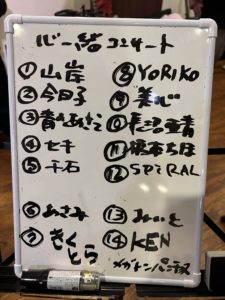 心一結コンサート
①山岸
②今日子
③青木あきら
④セキ
⑤千石
⑥あさみ
⑦きくとら
⑧YORIKO
⑨美心
⑩長沼亜青
⑪橋本ちほ
⑫SPIRAL
⑬みいと
⑭KEN
メガトンパンチ